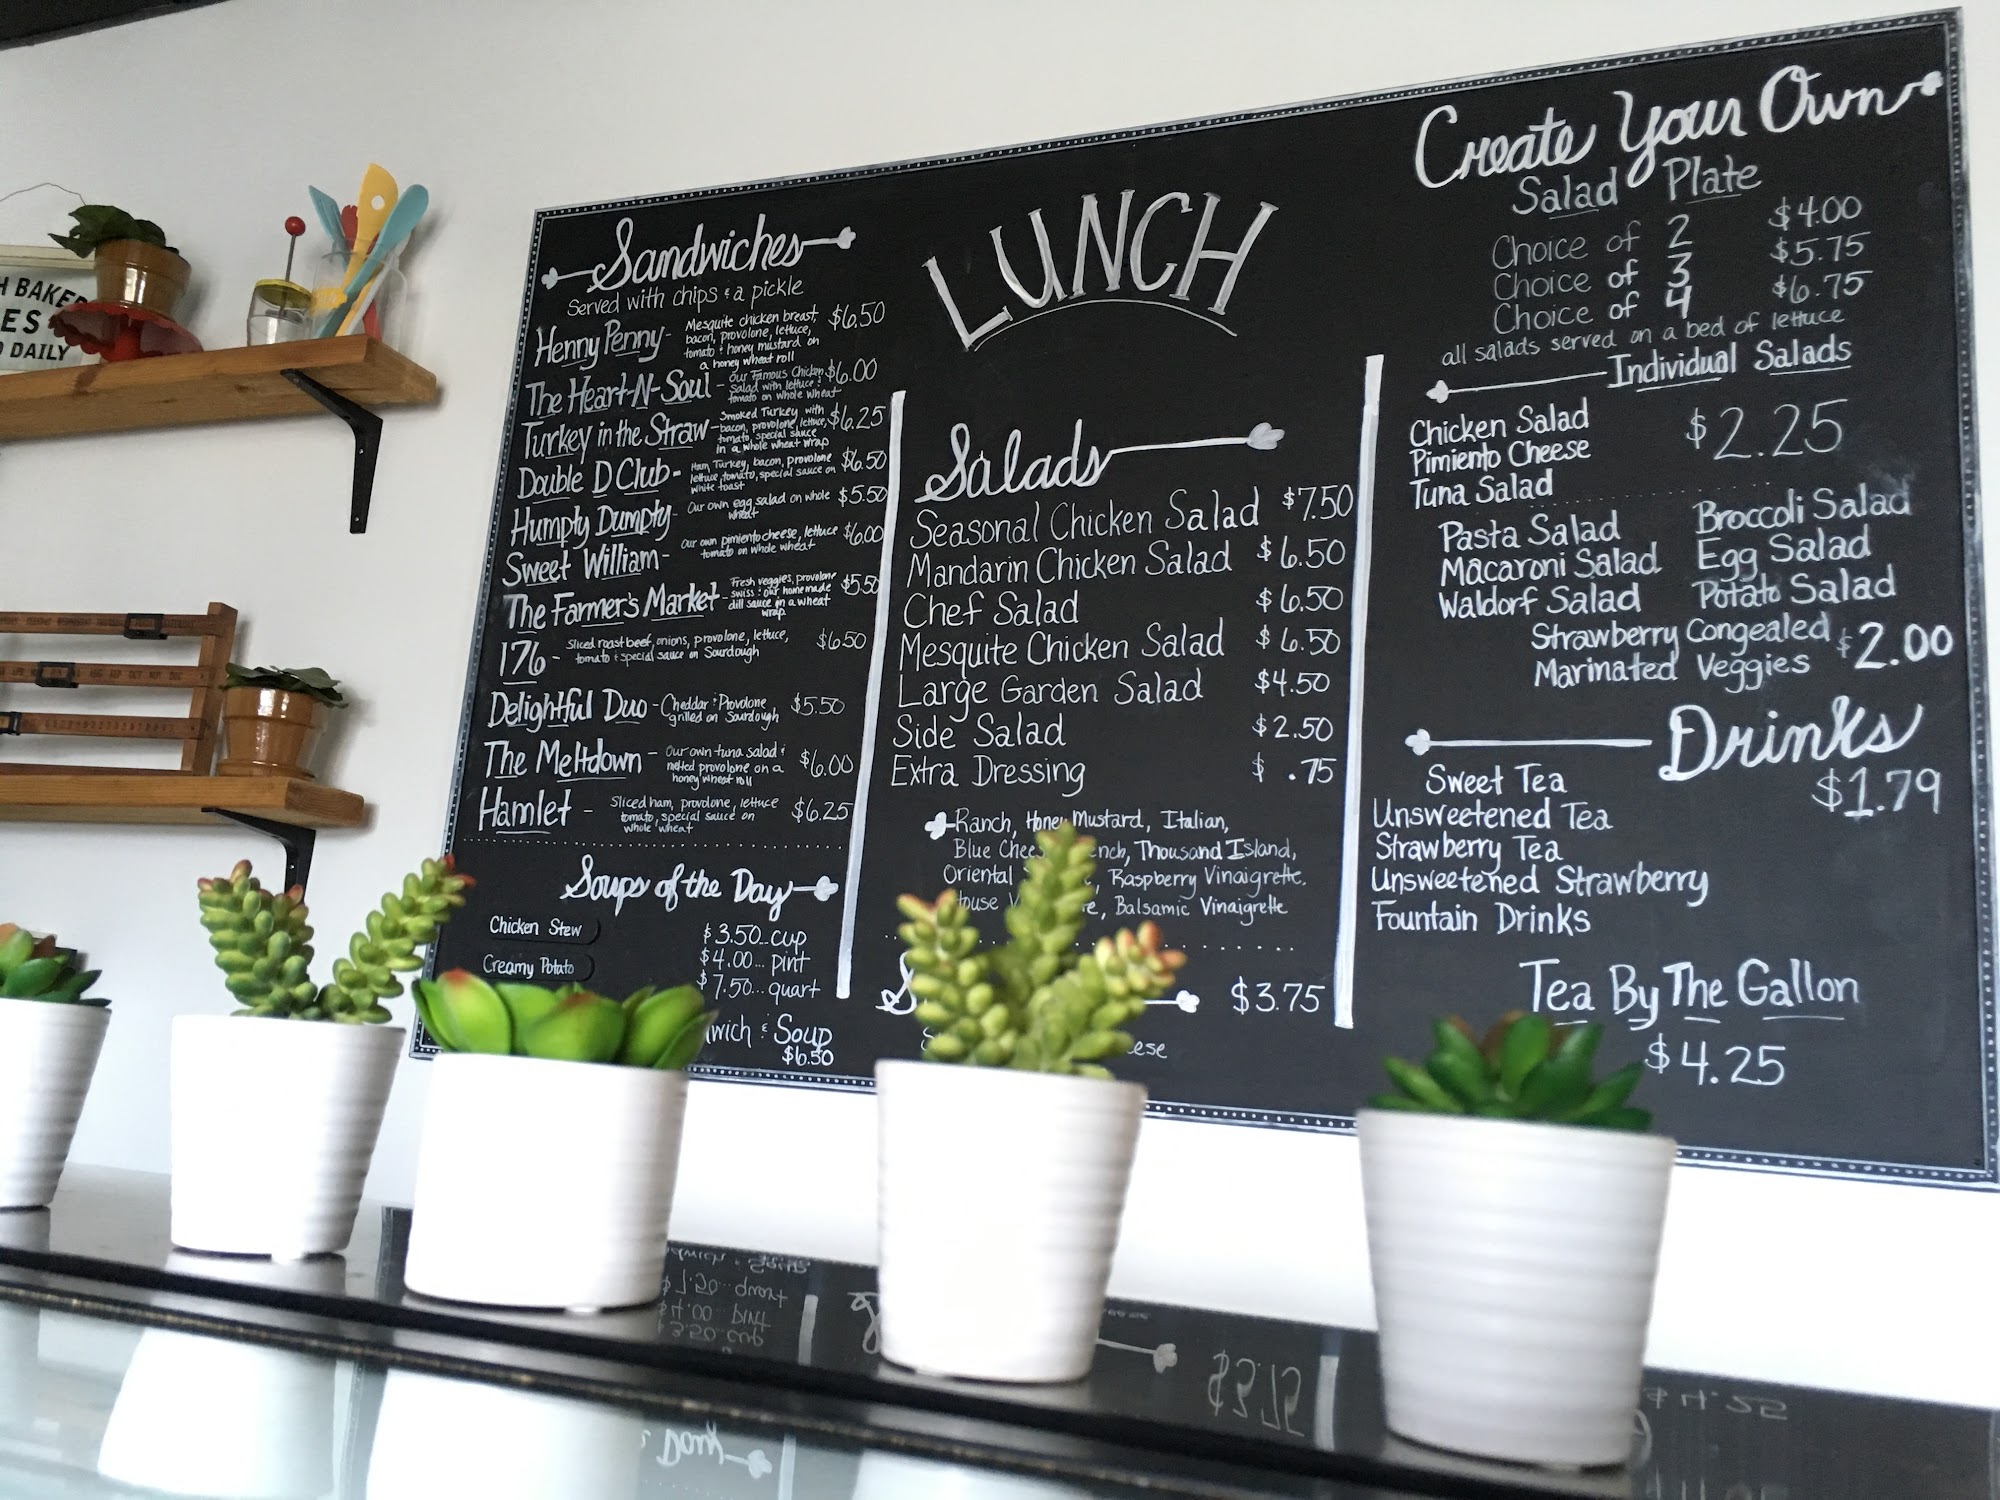 H BAKE
ES
DAILY
LUNCH
Sandwiches
Served with chips & a pickle
Henny Penny - Mesquite chicken breast, $6.50
bacon, provolone, lettuce,
tomato & honey mustard on
a honey wheat roll
The Heart-N-Soul - Our Famous Chicken $6.00
Salad with lettuce &
tomato on whole wheat
Turkey in the Straw - Smoked Turkey with $6.25
bacon, provolone, lettuce,
tomato, special sauce
in a whole wheat wrap
Double D Club - Ham, Turkey, bacon, provolone $6.50
lettuce, tomato, special sauce on
white toast
Humpty Dumpty - Our own egg salad on whole $5.50
wheat
Sweet William - Our own pimiento cheese, lettuce $6.00
tomato on whole wheat
The Farmer's Market - Fresh veggies, provolone $5.50
swiss & our homemade
dill sauce in a wheat
wrap
176 - Sliced roast beef, onions, provolone, lettuce, $6.50
tomato & special sauce on Sourdough
Delightful Duo - Cheddar & Provolone $5.50
grilled on Sourdough
The Meltdown - Our own tuna salad & $6.00
melted provolone on a
honey wheat roll
Hamlet - Sliced ham, provolone, lettuce $6.25
tomato, special sauce on
whole wheat
Soups of the Day
Chicken Stew
Creamy Potato
$3.50...cup
$4.00... pint
$7.50... quart
wich & Soup
$6.50
Salads
Seasonal Chicken Salad $7.50
Mandarin Chicken Salad $6.50
Chef Salad $6.50
Mesquite Chicken Salad $6.50
Large Garden Salad $4.50
Side Salad $2.50
Extra Dressing $ .75
Ranch, Honey Mustard, Italian,
Blue Chee ench, Thousand Island,
Oriental , Raspberry Vinaigrette,
House V e, Balsamic Vinaigrette
$3.75
eese
Create Your Own
Salad Plate
Choice of 2 $4.00
Choice of 3 $5.75
Choice of 4 $6.75
all salads served on a bed of lettuce
Individual Salads
Chicken Salad
Pimiento Cheese
Tuna Salad
$2.25
Pasta Salad Broccoli Salad
Macaroni Salad Egg Salad
Waldorf Salad Potato Salad
Strawberry Congealed
Marinated Veggies
$2.00
Drinks
$1.79
Sweet Tea
Unsweetened Tea
Strawberry Tea
Unsweetened Strawberry
Fountain Drinks
Tea By The Gallon
$4.25